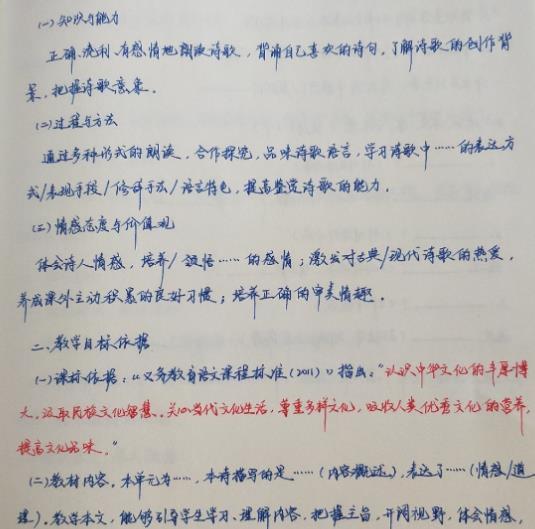 (一)知识与能力
正确、流利、有感情地朗读诗歌，背诵自己喜欢的诗句，了解诗歌的创作背
景，把握诗歌意象。
(二)过程与方法
通过多种形式的朗读，合作探究，品味诗歌语言，学习诗歌中……的表达方
式/表现手段/修辞手法/语言特色，提高鉴赏诗歌的能力。
(三)情感态度与价值观
体会诗人情感，培养/领悟……的感情；激发对古典/现代诗歌的热爱，
养成课外主动积累的良好习惯；培养正确的审美情趣。
二、教学目标依据
(一)课标依据：《义务教育语文课程标准(2011)》指出："认识中华文化的丰厚博
大，汲取民族文化智慧。关心当代文化生活，尊重多样文化，吸收人类优秀文化的营养，
提高文化品味。"
(二)教材内容。本单元为……，本诗描写的是……(内容概述)，表达了……(情感/道
理)。教学本文，能够引导学生学习、理解内容，把握主旨，开阔视野，体会情感，